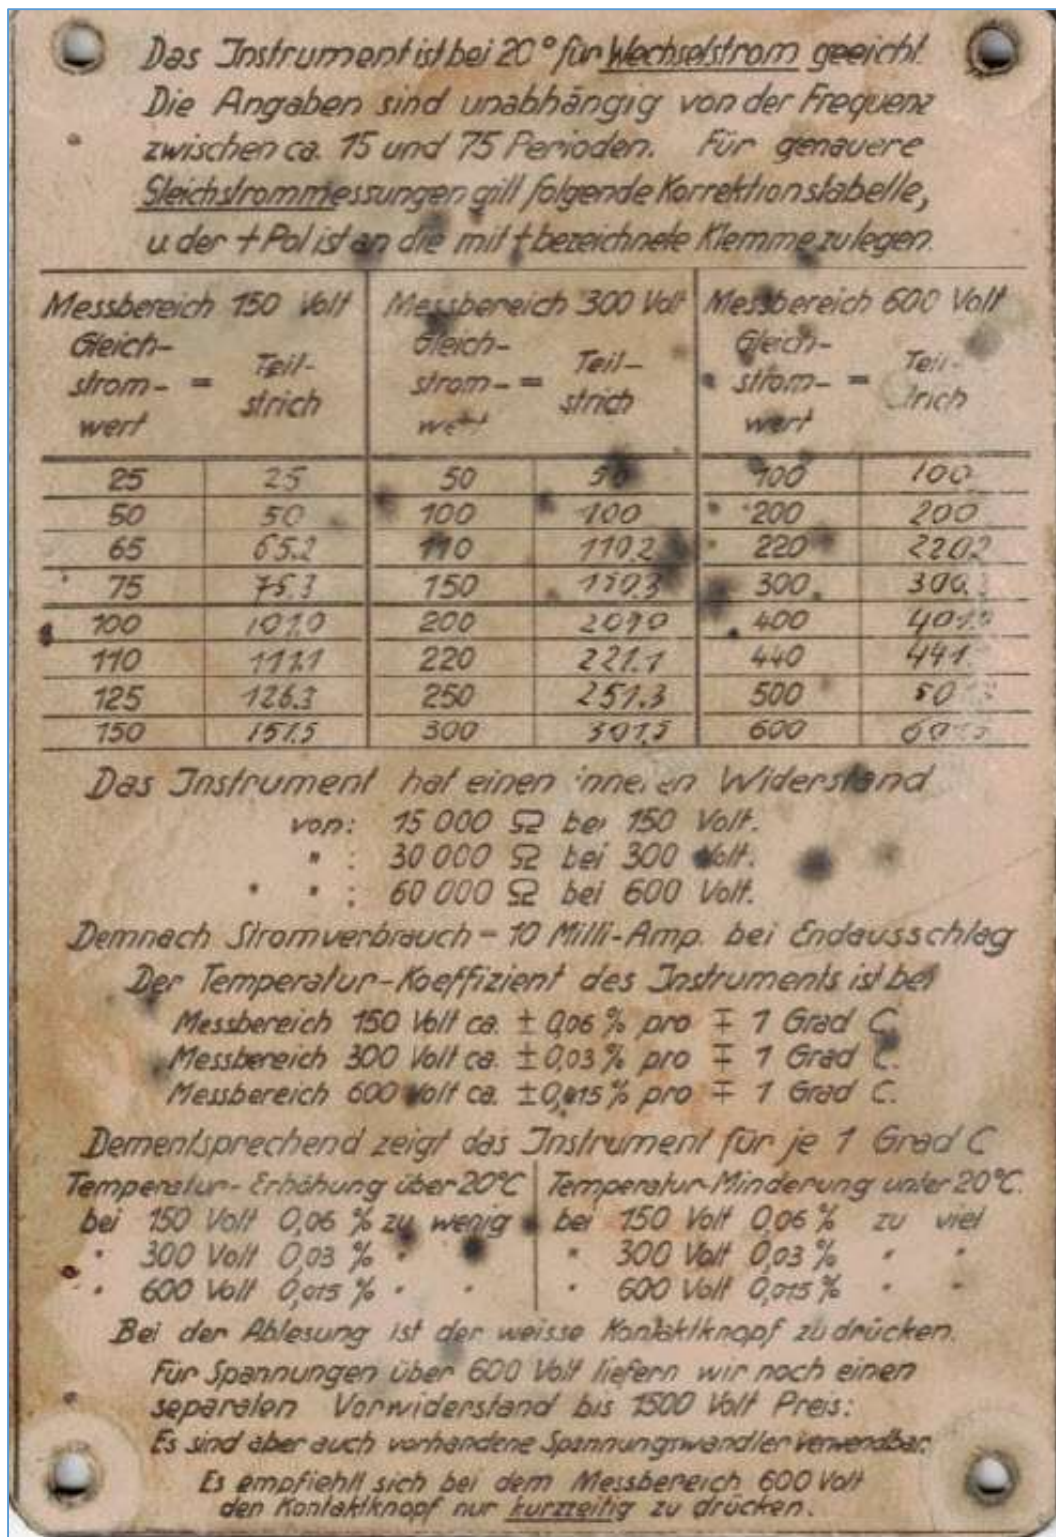 Das Instrument ist bei 20° für Wechselstrom geeicht.
Die Angaben sind unabhängig von der Frequenz
zwischen ca. 15 und 75 Perioden. Für genauere
Gleichstrommessungen gilt folgende Korrektionstabelle,
u. der + Pol ist an die mit + bezeichnete Klemme zu legen.
Messbereich 150 Volt Messbereich 300 Volt Messbereich 600 Volt
Gleich- Gleich- Gleich-
strom- = Teil- strom- = Teil- strom- = Teil-
wert strich wert strich wert strich
25 25 50 50 100 100
50 50 100 100 200 200
65 65.2 110 110.2 220 220.2
75 75.3 150 150.3 300 300.
100 101.0 200 201.0 400 401.0
110 111.1 220 221.1 440 441.
125 126.3 250 251.3 500 501.
150 151.5 300 301.5 600 601.5
Das Instrument hat einen inneren Widerstand
von: 15 000 Ω bei 150 Volt.
" : 30 000 Ω bei 300 Volt.
" " : 60 000 Ω bei 600 Volt.
Demnach Stromverbrauch = 10 Milli-Amp. bei Endausschlag
Der Temperatur-Koeffizient des Instruments ist bei
Messbereich 150 Volt ca. ± 0,06 % pro ∓ 1 Grad C.
Messbereich 300 Volt ca. ± 0,03 % pro ∓ 1 Grad C.
Messbereich 600 Volt ca. ± 0,015 % pro ∓ 1 Grad C.
Dementsprechend zeigt das Instrument für je 1 Grad C
Temperatur-Erhöhung über 20°C Temperatur-Minderung unter 20°C.
bei 150 Volt 0,06 % zu wenig bei 150 Volt 0,06 % zu viel
" 300 Volt 0,03 % " " " 300 Volt 0,03 % " "
" 600 Volt 0,015 % " " " 600 Volt 0,015 % " "
Bei der Ablesung ist der weisse Kontaktknopf zu drücken.
Für Spannungen über 600 Volt liefern wir noch einen
separaten Vorwiderstand bis 1500 Volt Preis:
Es sind aber auch vorhandene Spannungswandler verwendbar.
Es empfiehlt sich bei dem Messbereich 600 Volt
den Kontaktknopf nur kurzzeitig zu drücken.